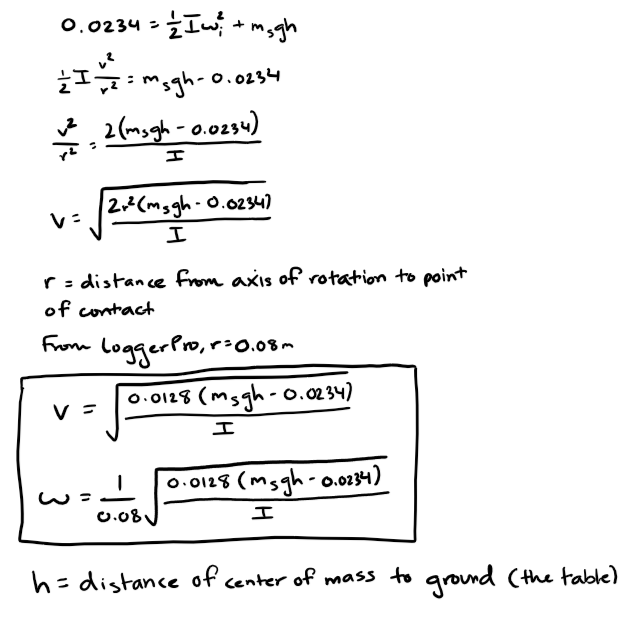 0.0234 = 1/2 Iω_i² + m_sgh
1/2 I v²/r² = m_sgh - 0.0234
v²/r² = 2(m_sgh - 0.0234)/I
v = √(2r²(m_sgh - 0.0234)/I)
r = distance from axis of rotation to point
of contact
From LoggerPro, r=0.08m
v = √(0.0128 (m_sgh - 0.0234)/I)
ω = 1/0.08 √(0.0128 (m_sgh - 0.0234)/I)
h = distance of center of mass to ground (the table)